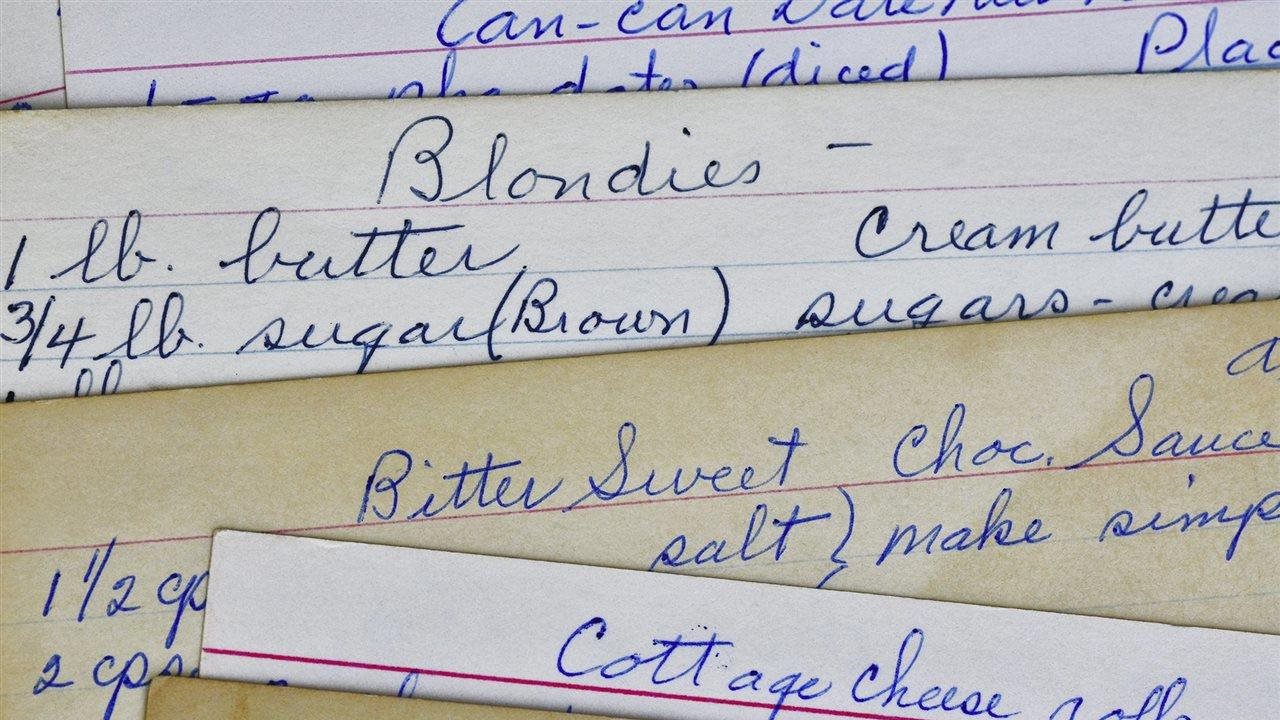 Can-can Date
dates (diced) Plac
Blondies -
1 lb. butter Cream butte
3/4 lb. sugar (Brown) sugars - crea
Bitter Sweet Choc. Sauce
salt } make simp
1 1/2 cp
2 cps
Cottage Cheese